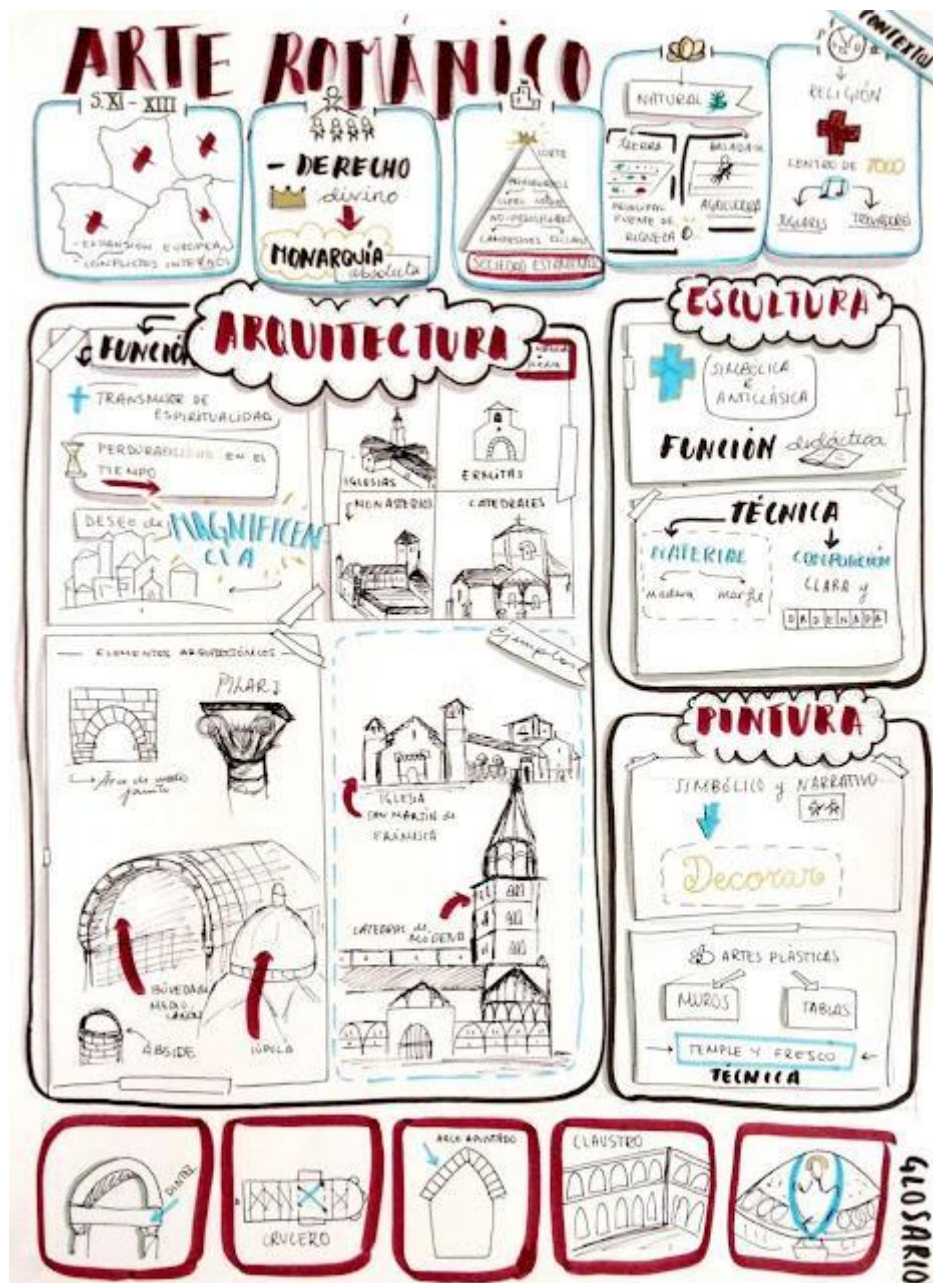 ARTE ROMÁNICO
CONTEXTO
S. XI - XIII
- EXPANSIÓN EUROPEA
- CONFLICTOS INTERNOS
- DERECHO
divino
MONARQUÍA
absoluta
CORTE
NO-PRIVILEGIADOS
CAMPESINOS
SOCIEDAD ESTAMENTAL
NATURAL
TIERRA
PRINCIPAL
FUENTE DE
RIQUEZA
BASADA EN
AGRICULTURA
RELIGIÓN
CENTRO DE TODO
JUGLARES
TROVADORES
ARQUITECTURA
FUNCIÓN
TRANSMISOR DE
ESPIRITUALIDAD
PERDURABILIDAD EN EL
TIEMPO
DESEO de MAGNIFICEN
CIA
IGLESIAS
ERMITAS
MONASTERIOS
CATEDRALES
ELEMENTOS ARQUITECTÓNICOS
PILARES
Arco de medio
punto
BÓVEDA DE
MEDIO
CAÑÓN
ÁBSIDE
CÚPULA
Ejemplos
IGLESIA
SAN MARTÍN de
FRÓMISTA
CATEDRAL de
MÓDENA
ESCULTURA
SIMBÓLICA
E
ANTICLÁSICA
FUNCIÓN didáctica
TÉCNICA
MATERIAL
madera marfil
COMPOSICIÓN
CLARA y
ORDENADA
PINTURA
SIMBÓLICO y NARRATIVO
Decorar
ARTES PLÁSTICAS
MUROS
TABLAS
TEMPLE Y FRESCO
TÉCNICA
DINTEL
CRUCERO
ARCO APUNTADO
CLAUSTRO
GLOSARIO